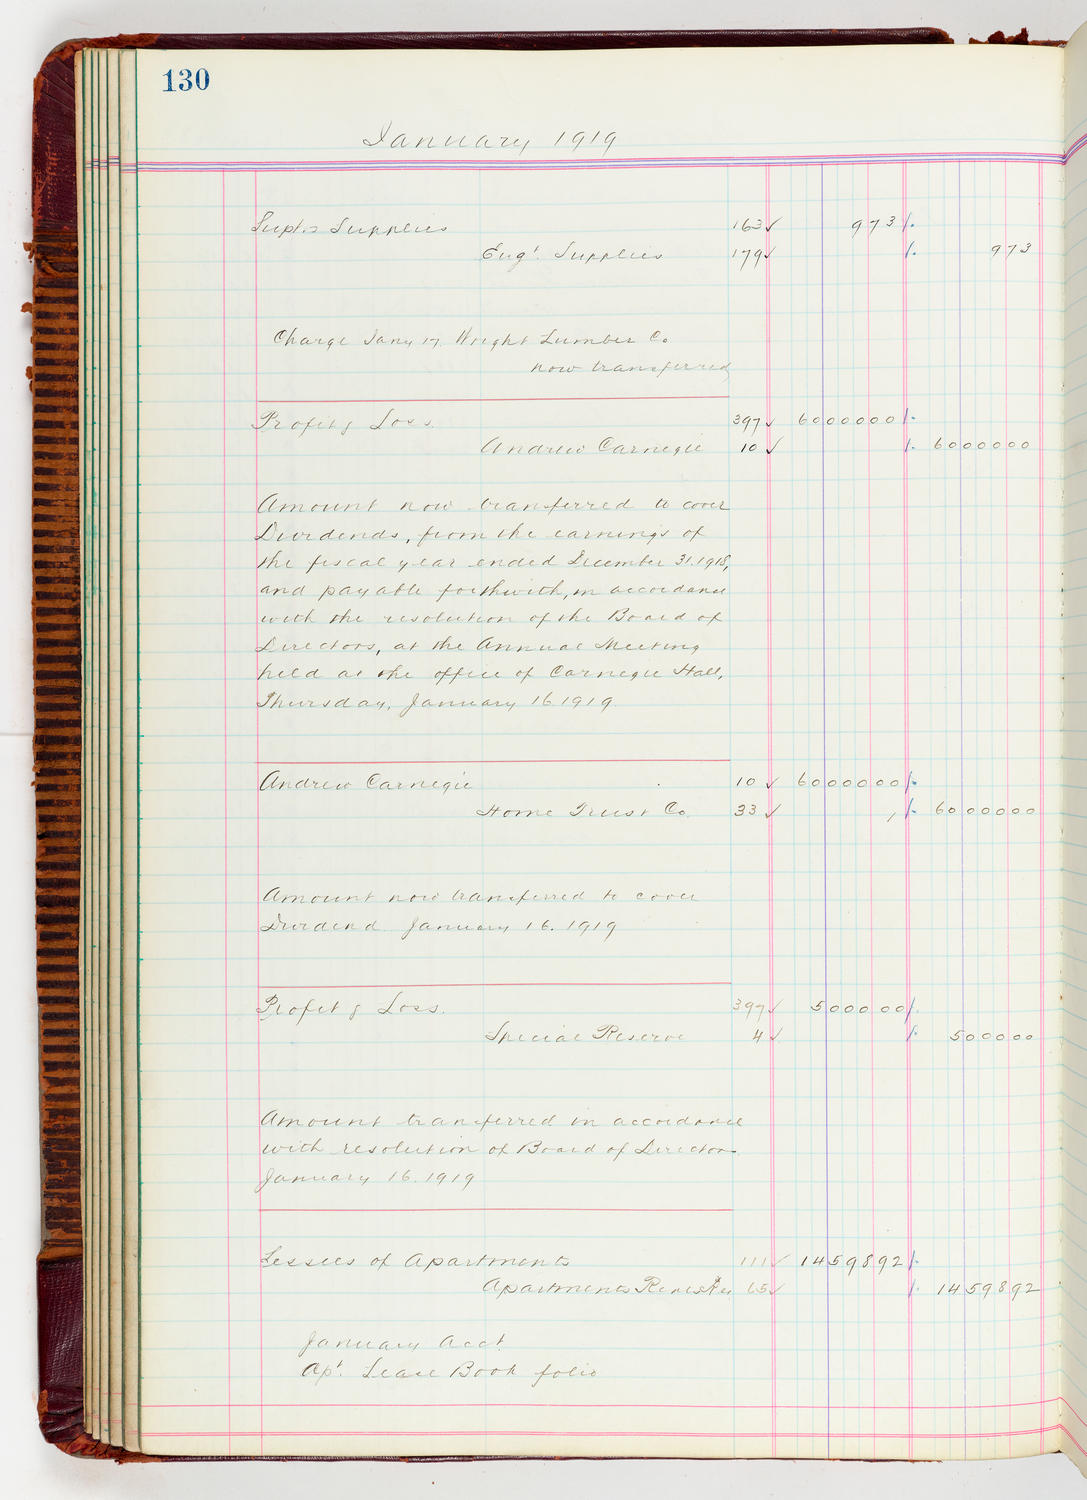 130
January 1919
Supt's Supplies 163 ✓ 973 /.
Eng'. Supplies 179 ✓ /. 973
Charge Jany 17. Wright Lumber Co
now transferred
Profit & Loss. 397 ✓ 6000000 /.
Andrew Carnegie 10 ✓ /. 6000000
Amount now transferred to cover
Dividends, from the earnings of
the fiscal year ended December 31.1918,
and payable forthwith, in accordance
with the resolution of the Board of
Directors, at the Annual Meeting
held at the office of Carnegie Hall,
Thursday, January 16 1919.
Andrew Carnegie 10 ✓ 6000000 /.
Home Trust Co. 33 ✓ /. 6000000
Amount now transferred to cover
Dividend January 16. 1919
Profit & Loss. 397 ✓ 500000 /.
Special Reserve 4 ✓ /. 500000
Amount transferred in accordance
with resolution of Board of Directors
January 16. 1919
Lessees of Apartments 111 ✓ 1459892 /.
Apartments 65 ✓ /. 1459892
January Acct.
Apt. Lease Book folio